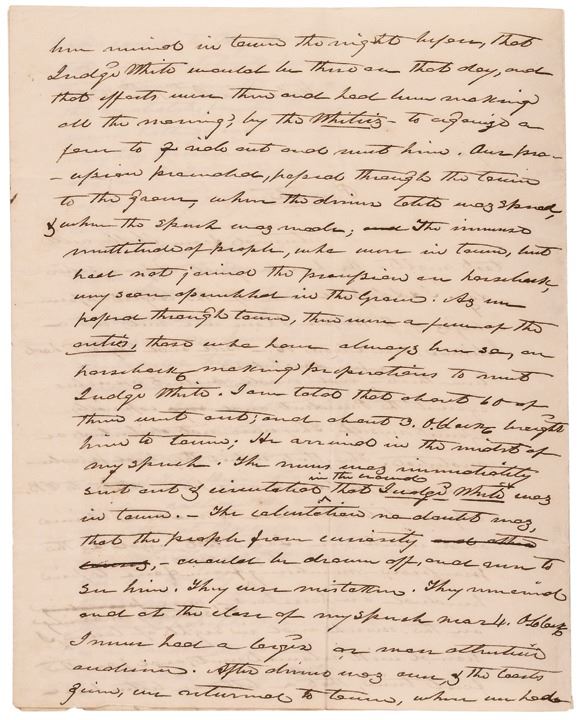 been rumored in town the night before, that
Judge White would be there on that day, and
that efforts were then and had been making
all the morning, by the Whities - to organize a
few to ride out and meet him. Our pro-
-cession proceeded, passed through the town
to the grove, where the dinner table was spread,
& where the speech was made; and The immense
multitude of people, who were in town, but
had not joined the procession on horseback,
very soon assembled in the Grove. As we
passed through town, there were a few of the
anties, those who have always been so, on
horseback making preparations to meet
Judge White. I am told that about 60 of
them went out; and about 3. O'Clock brought
him to town; He arrived in the midst of
my speech. The news was immediately
sent out & circulated in the crowd that Judge White was
in town. - The calculation no doubt was,
that the people from curiosity and other
- would be drawn off, and run to
see him. They were mistaken. They remained
and at the close of my speech near 4. O'Clock
I never had a larger or more attentive
audience. After dinner was over, & the toasts
given, we returned to town, where we had